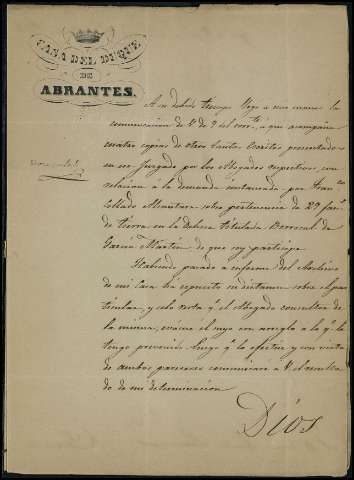 CASA DEL DUQUE
DE
ABRANTES.
A su debido tiempo llegó a mis manos la
comunicacion de V de 2 del corr.te, a que acompaña
cuatro copias de otros tantos Escritos presentados
en ese Juzgado por los Abogados respectivos con
relacion a la demanda instaurada por Fran.co
Collado Alcantara sobre pertenencia de 29 fan.s
de tierra en la Dehesa titulada Berrocal de
Garcia Martin de que soy participe.
Habiendo pasado a informe del Archivo
de mi Casa ha espuesto su dictamen sobre el par
ticular, y solo resta q.e el Abogado consultor de
la misma, evacue el suyo con arreglo a lo q.e le
tengo prevenido. Luego q.e lo efectue y con vista
de ambos pareceres comunicaré a V el resulta
do de mi determinacion.
Dios